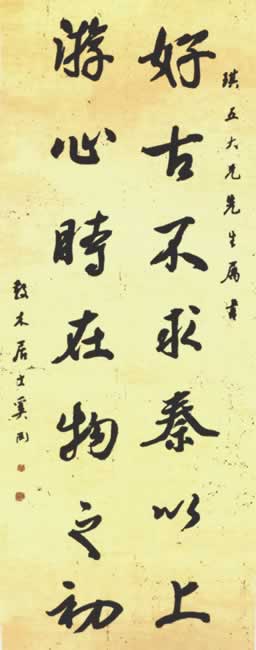 琪五大兄先生属書
好古不求秦以上
游心時在物之初
散木居士奚岡